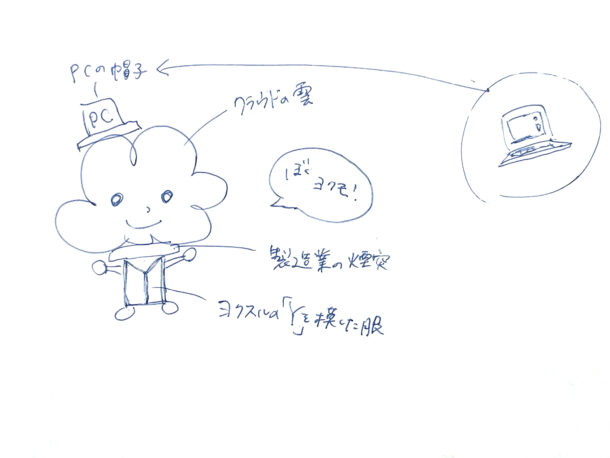 PCの帽子
PC
クラウドの雲
ぼく
ヨクモ!
製造業の煙突
ヨクスルの「Y」を模した服